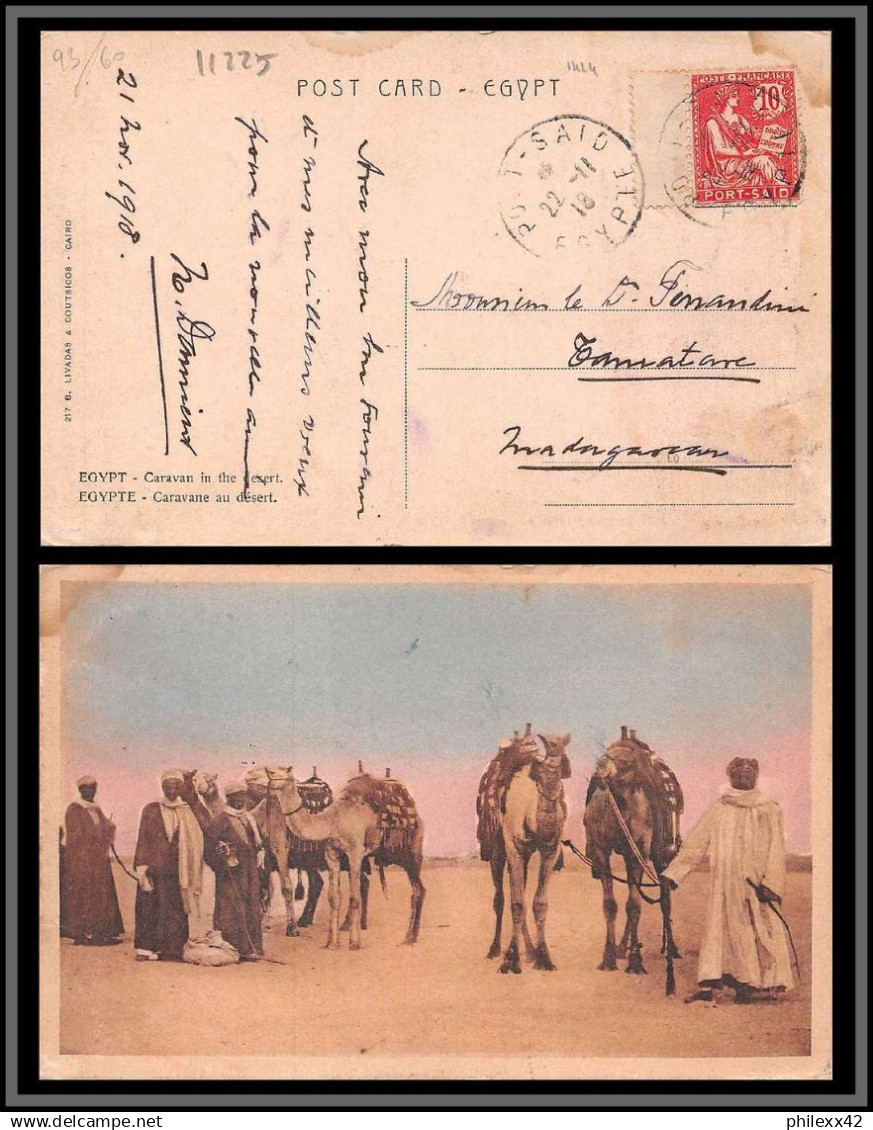 93/60
11225
POST CARD - EGYPT
POSTE FRANÇAISE
10
DROITS DE L'HOMME
PORT-SAID
PORT-SAID
22-11
18
EGYPTE
21 nov. 1918.
Avec mon bon souvenir
et mes meilleurs vœux
pour la nouvelle année
Monsieur le Dr
Tamatave
Madagascar
217 B. LIVADAS & COUTSICOS - CAIRO
EGYPT - Caravan in the desert.
EGYPTE - Caravane au désert.
philexx42